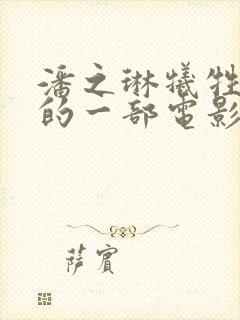 潘之琳犠牲
的一部電影
薩賓